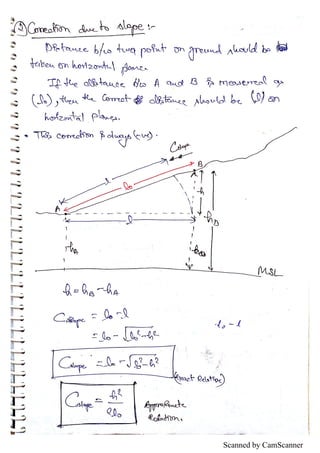 ③ Correction due to slope :-
Distance b/w two point on ground should be
taken on horizontal plane.
If the distance b/w A and B is measured as
(l₀), then the correct distance should be (l) on
horizontal plane.
• This correction is always (-ve).
Cslope
B
l
l₀
A
h
l
hB
hA
hA
MSL
h = hB - hA
Cslope = l₀ - l
l₀ - l
= l₀ - √l₀²-h²
Cslope = l₀ - √l₀²-h²
(Exact Relation)
Cslope = h²/2l₀
Approximate
Relation.
Scanned by CamScanner